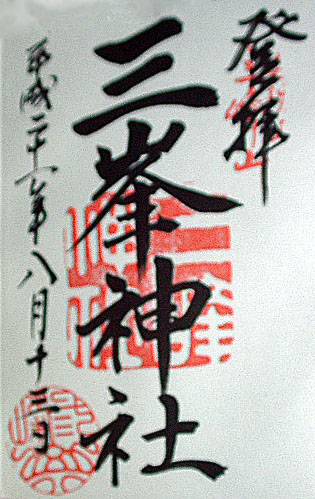 登拝
三峯神社
平成二十六年八月十三日